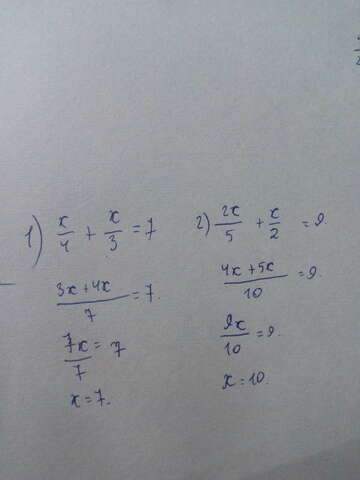 1) x/4 + x/3 = 7
(3x+4x)/7 = 7.
7x/7 = 7
x=7.
2) 2x/5 + x/2 = 9
(4x+5x)/10 = 9.
9x/10 = 9.
x=10.